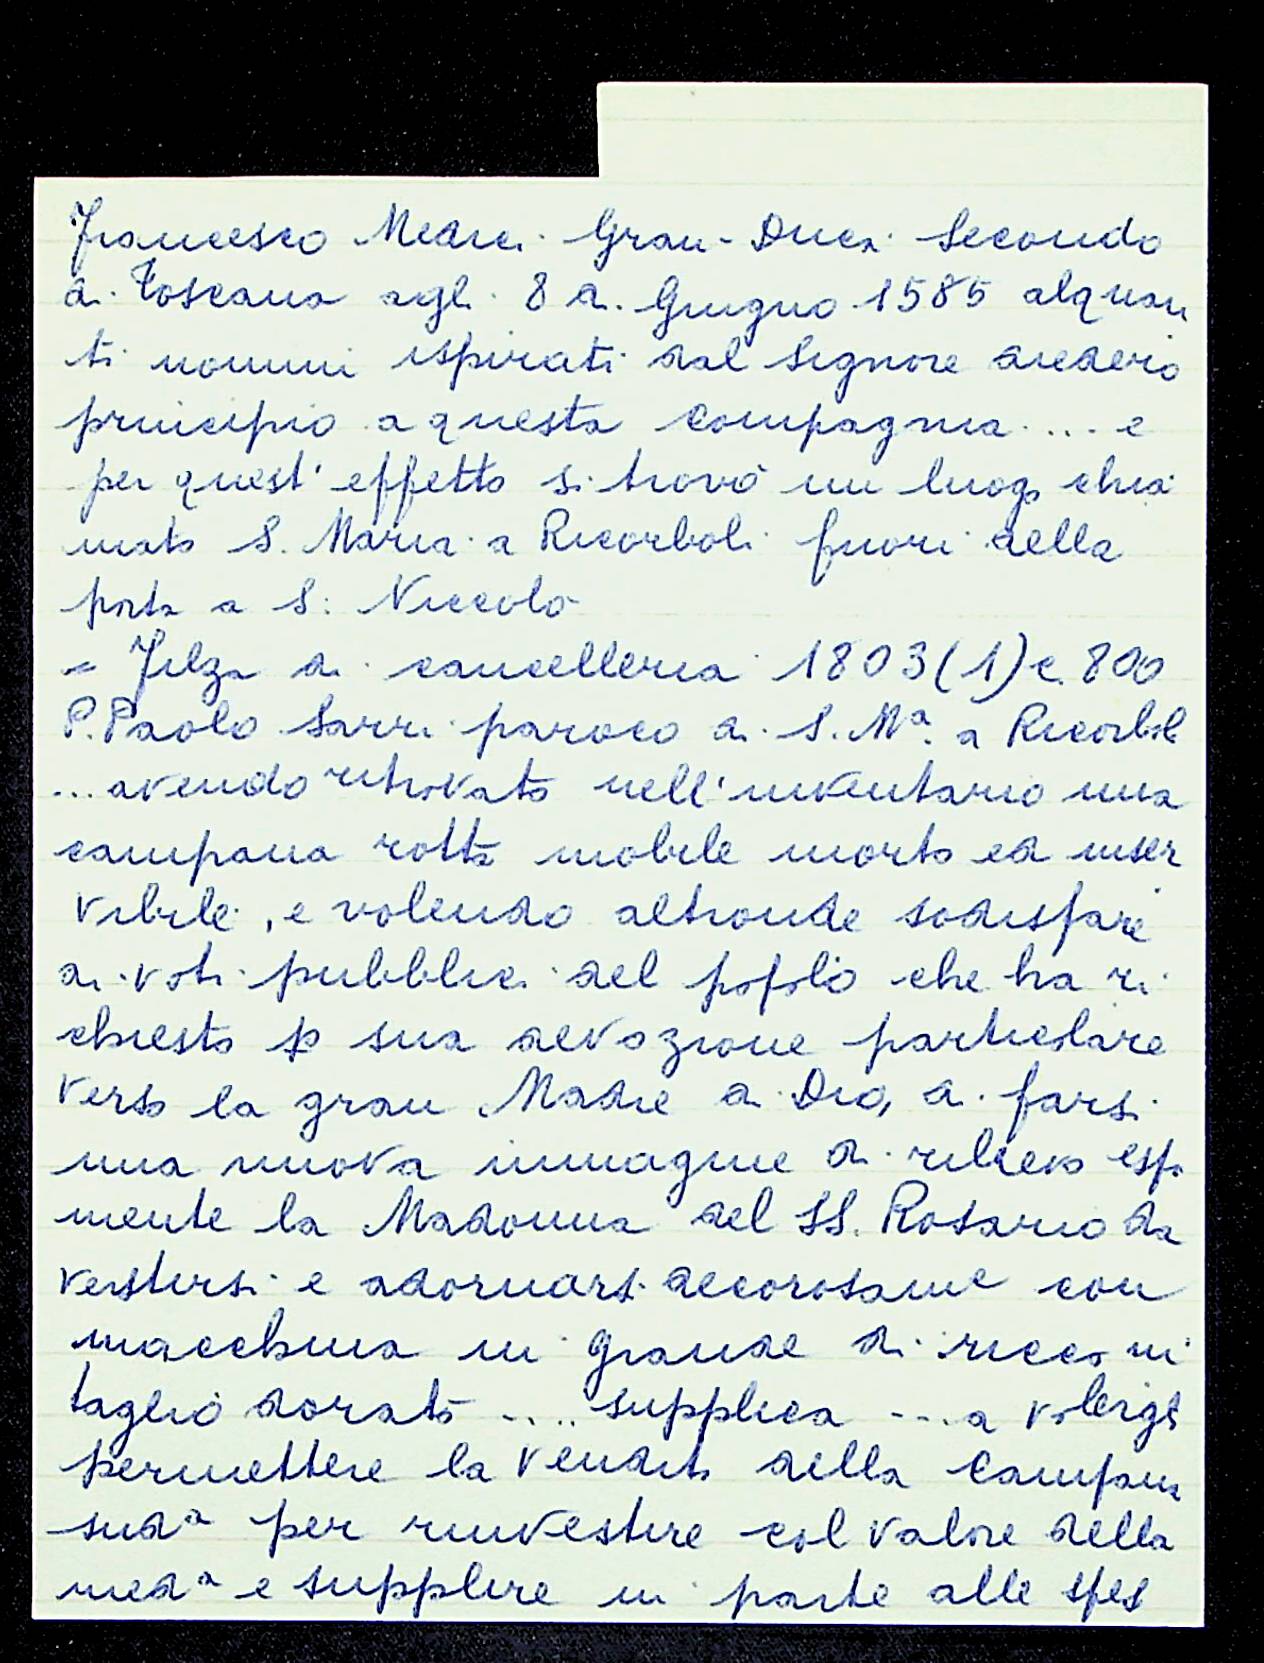 Francesco Medici Gran-Duca Secondo
di Toscana agli 8 di Giugno 1585 alquan
ti uomini ispirati dal Signore diedero
principio a questa compagnia .... e
per quest'effetto si trovò un luogo chia
mato S. Maria a Ricorboli fuori della
porta a S. Niccolò
= Filza di cancelleria 1803(1) c. 800
P. Paolo Sarri paroco di S. Mª. a Ricorboli
... avendo ritrovato nell'inventario una
campana rotta mobile morto ed inser
vibile, e volendo altronde sodisfare
ai voti pubblici del popolo che ha ri
chiesto p sua devozione particolare
verso la gran Madre di Dio, di farsi
una nuova immagine di rilievo esp
mente la Madonna del SS. Rosario da
vestirsi e adornarsi decorosame con
macchina in grande di ricco in
taglio dorato ..... supplica ... a volergli
permettere la vendita della campana
sudª per rinvestire col valore della
medª e supplire in parte alle spes